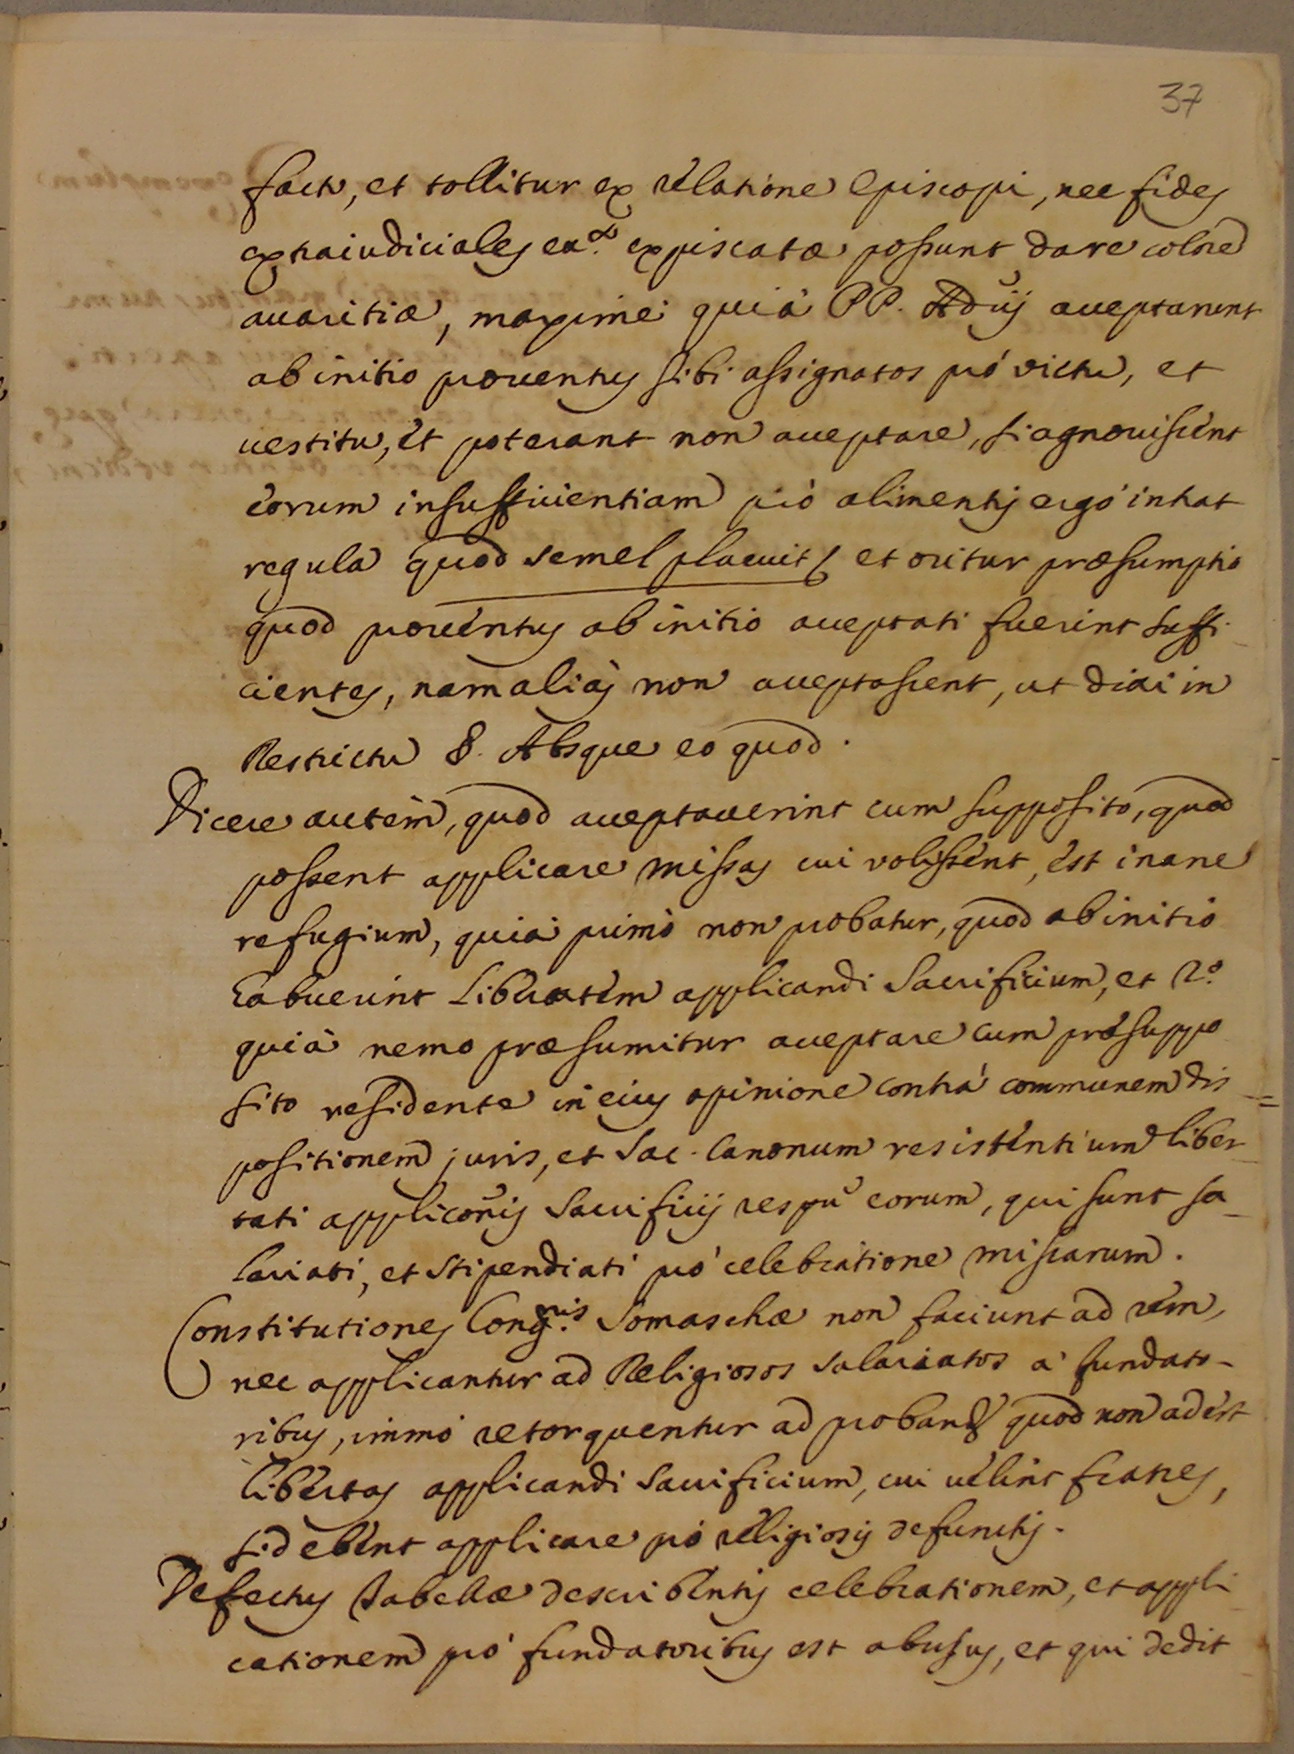 37
facto, et tollitur ex relatione Episcopi, nec fides
extraiudiciales expiscatæ possunt dare colorē
avaritiæ, maximè quià PP. acceptarunt
ab initio proventus sibi assignatos prò victu, et
vestitu, èt poterant non acceptare, si agnovissent
eorum insufficientiam prò alimentis ergò intrat
regula quod semel placuit et oritur præsumptio
quod proventus ab initio acceptati fuerint suffi-
cientes, nam aliàs non acceptassent, ut dixi in
Restrictu §. Absque eo quod.
Dicere autèm, quod acceptaverint cum supposito, quod
possent applicare missas cui voluissent, èst inane
refugium, quià primò non probatur, quod ab initio
habuerint libertatem applicandi Sacrificium, et 2.º
quià nemo præsumitur acceptare cum præsuppo
sito residente in eius opinione contrà communem dis
positionem juris, et Sac. Canonum resistèntium liber-
tati applicōnis Sacrificij respū eorum, qui sunt sa-
lariati, et stipendiati prò celebratione missarum.
Constitutiones Congnis. Somaschæ non faciunt ad rem,
nec applicantur ad Religiosos salariatos à fundato-
ribus, immò retorquentur ad proband quod non adèst
libertas applicandi Sacrificium, cui velint fratres,
si debènt applicare prò religiosis defunctis.
Defectus tabellæ describèntis celebrationem, et appli
cationem prò fundatoribus est abusus, et qui dedit